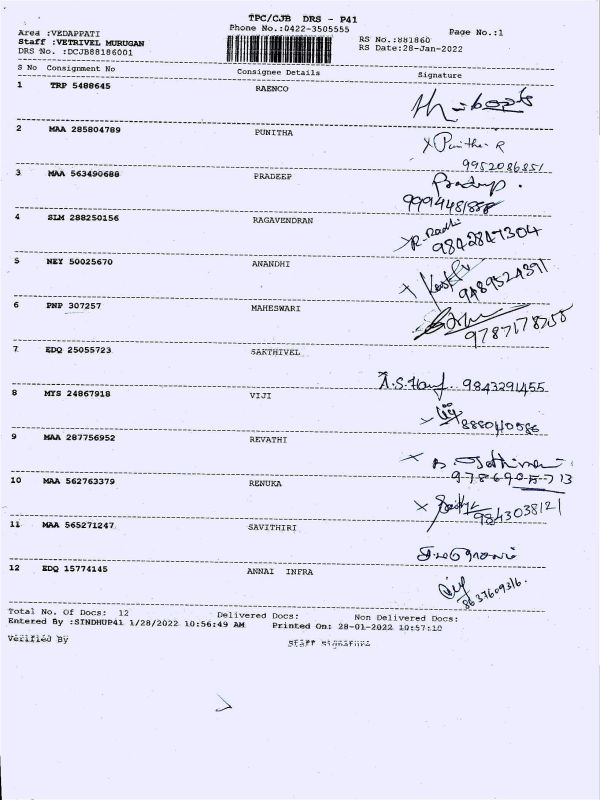 TPC/CJB DRS - P41
Phone No.:0422-3505555
Area :VEDAPPATI
Page No.:1
Staff :VETRIVEL MURUGAN
RS No.:881860
DRS No. :DCJB88186001
RS Date:28-Jan-2022
S No Consignment No Consignee Details Signature
1 TRP 5488645 RAENCO
2 MAA 285804789 PUNITHA
x Punitha. R
9952086851
3 MAA 563490688 PRADEEP
Pradeep.
9994481858
4 SLM 288250156 RAGAVENDRAN
R. Radhi
9842847304
5 NEY 50025670 ANANDHI
x
9489524371
6 PNP 307257 MAHESWARI
9787178758
7 EDQ 25055723 SAKTHIVEL
9843291455
8 MYS 24867918 VIJI
9 MAA 287756952 REVATHI
x
10 MAA 562763379 RENUKA
x
9843038121
11 MAA 565271247 SAVITHIRI
12 EDQ 15774145 ANNAI INFRA
8637609316.
Total No. Of Docs: 12 Delivered Docs: Non Delivered Docs:
Entered By :SINDHUP41 1/28/2022 10:56:49 AM Printed On: 28-01-2022 10:57:10
Verified By Staff Signature